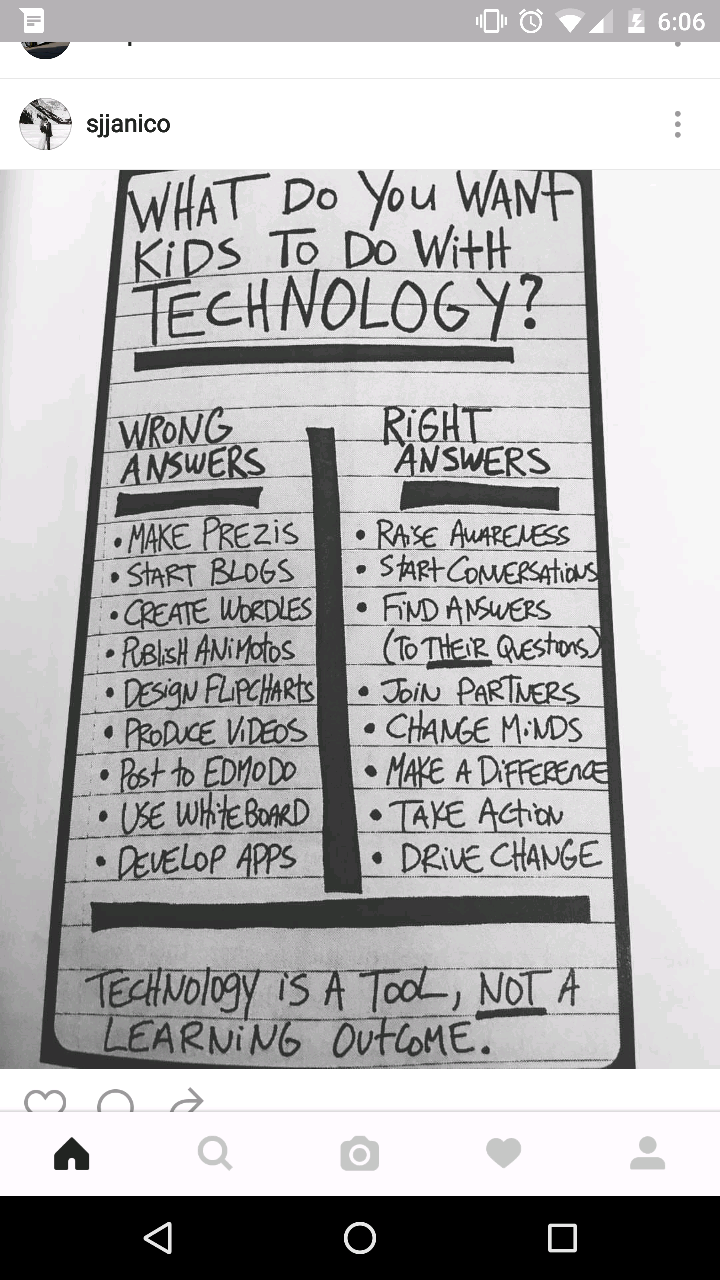 6:06
sjjanico
WHAT DO YOU WANT
KiDS TO DO WitH
TECHNOLOGY?
WRONG
ANSWERS
• MAKE PREZiS
• START BLOGS
• CREATE WORDLES
• PUBLISH ANiMOtOS
• DESiGN FLiPCHARtS
• PRODUCE ViDEOS
• Post to EDMODO
• USE WHitEBOARD
• DEVELOP APPS
RiGHT
ANSWERS
• RAiSE AWARENESS
• StARt CONVERSAtiONS
• FiND ANSWERS
(TO THEiR QUEStiONS)
• JOiN PARTNERS
• CHANGE MiNDS
• MAKE A DiFFERENCE
• TAKE ACtiON
• DRiVE CHANGE
TECHNOlOgy iS A TOOL, NOT A
LEARNiNG OUtCOME.